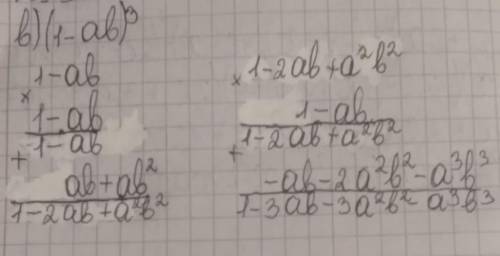 в) (1-ab)³
1-ab
× 1-ab
1-ab
+ ab+ab²
1-2ab+a²b²
× 1-2ab+a²b²
1-ab
1-2ab+a²b²
+ -ab-2a²b²-a³b³
1-3ab-3a²b²-a³b³